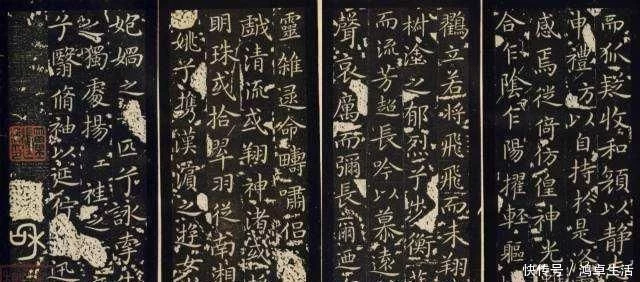 而狐疑收和顏以静
申禮防以自持於是洛
感焉徙倚仿偟神光
合乍陰乍陽擢輕軀
鸛立若將飛飛而未翔
椒塗之郁烈兮步衡薄
而流芳超長吟以慕遠
聲哀厲而彌長爾迺
靈雜遝命疇嘯侶
戲清流或翔神渚或
明珠或拾翠羽從南湘
姚兮攜漢濱之遊女
妃媧之匹兮詠牽
之獨處揚袿之
兮翳脩袖以延佇迅
快传号/鸿卓生活